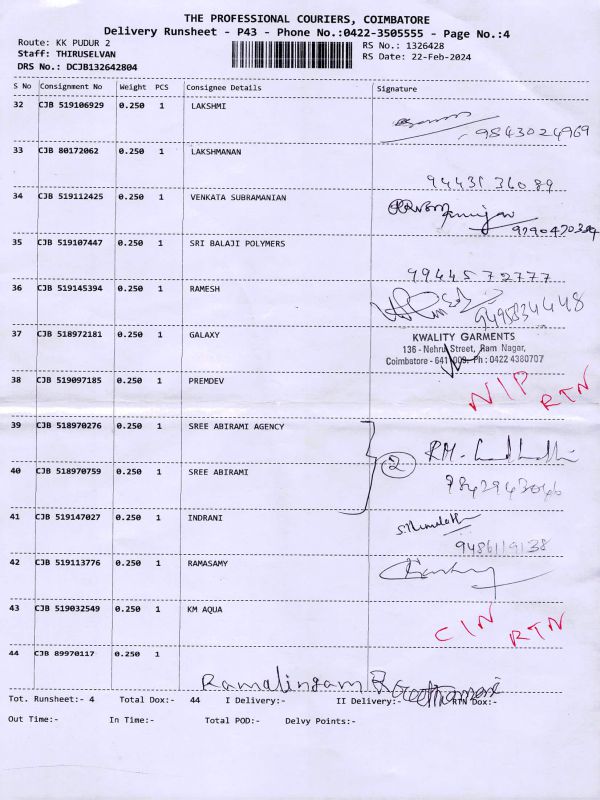 THE PROFESSIONAL COURIERS, COIMBATORE
Delivery Runsheet - P43 - Phone No.:0422-3505555 - Page No.:4
Route: KK PUDUR 2 RS No.: 1326428
Staff: THIRUSELVAN RS Date: 22-Feb-2024
DRS No.: DCJB132642804
S No Consignment No Weight PCS Consignee Details Signature
32 CJB 519106929 0.250 1 LAKSHMI
9843024969
33 CJB 80172062 0.250 1 LAKSHMANAN
94431 36089
34 CJB 519112425 0.250 1 VENKATA SUBRAMANIAN
35 CJB 519107447 0.250 1 SRI BALAJI POLYMERS
99445 72777
36 CJB 519145394 0.250 1 RAMESH
37 CJB 518972181 0.250 1 GALAXY
KWALITY GARMENTS
136 - Nehru Street, Ram Nagar,
Coimbatore - 641 009. Ph : 0422 4380707
38 CJB 519097185 0.250 1 PREMDEV
N/P RTN
39 CJB 518970276 0.250 1 SREE ABIRAMI AGENCY
2
40 CJB 518970759 0.250 1 SREE ABIRAMI
41 CJB 519147027 0.250 1 INDRANI
9486119138
42 CJB 519113776 0.250 1 RAMASAMY
43 CJB 519032549 0.250 1 KM AQUA
C/N RTN
44 CJB 89970117 0.250 1
Ramalingam R
Tot. Runsheet:- 4 Total Dox:- 44 I Delivery:- II Delivery:- RTN Dox:-
Out Time:- In Time:- Total POD:- Delvy Points:-